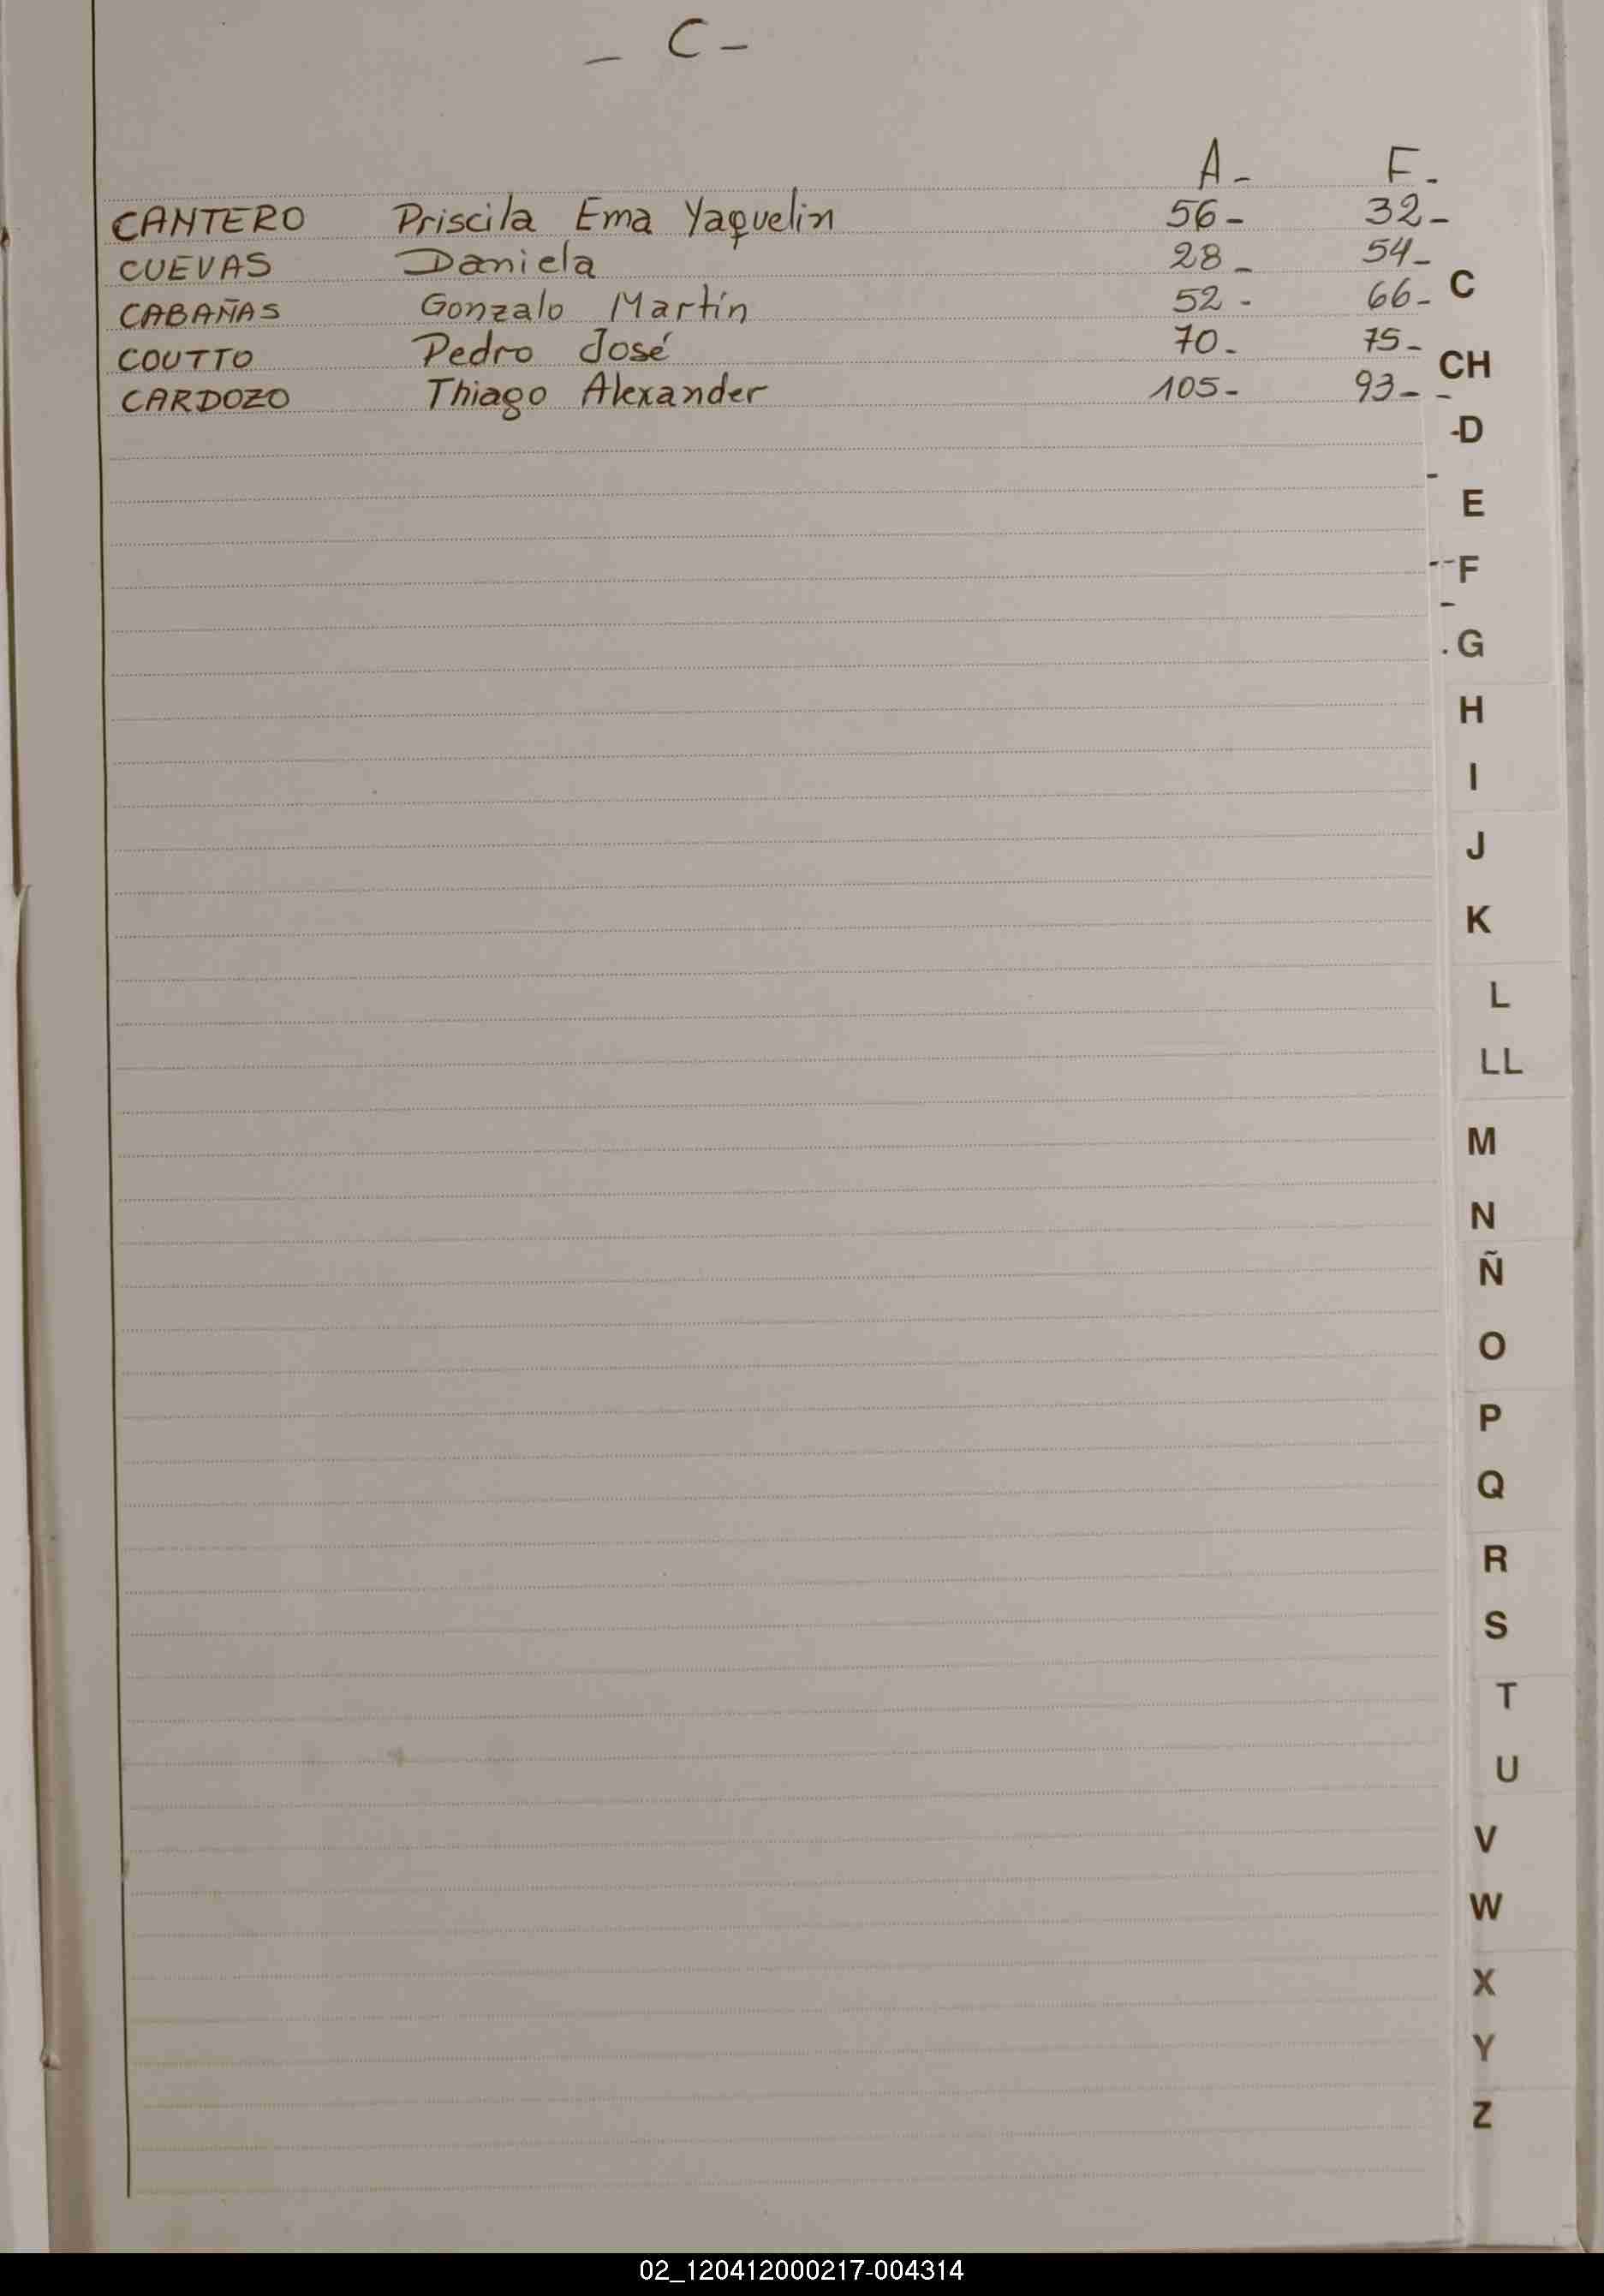 - C -
A- F-
CANTERO Priscila Ema Yaquelin 56- 32-
CUEVAS Daniela 28- 54-
CABAÑAS Gonzalo Martín 52- 66-
COUTTO Pedro José 70- 75-
CARDOZO Thiago Alexander 105- 93-
C
CH
D
E
F
G
H
I
J
K
L
LL
M
N
Ñ
O
P
Q
R
S
T
U
V
W
X
Y
Z
02_120412000217-004314